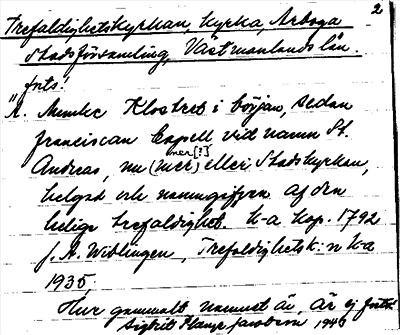 2
Trefaldighetskyrkan, kyrka, Arboga
Stadsförsamling, Västmanlands län.
forts.
"A. Munke Klostret i början, sedan
franciscan Capell vid namn St.
mer [?]
Andreas, nu (mer) eller Stadskyrkan,
helgad och namngifven af den
helige trefaldighet. K-a kap. 1792
f. A. Widlingen, Trefaldighetsk:n k-a
1935.
Hur gammalt namnet är, är ej
Sigbrit Plænge Jacobson 1940